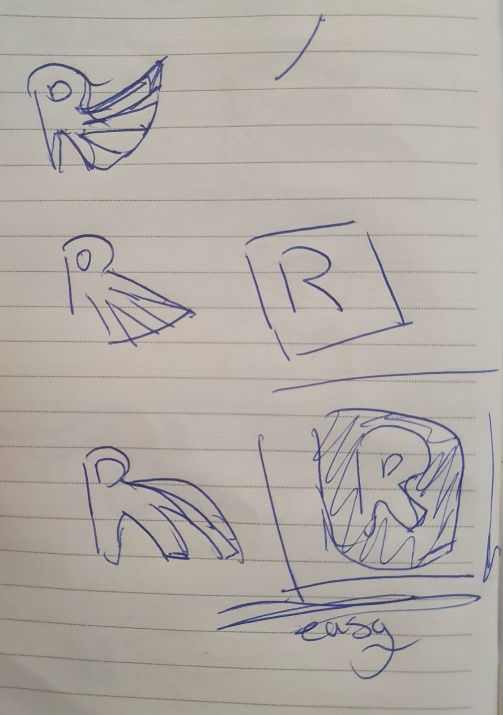 R
R
R
R
R
easy